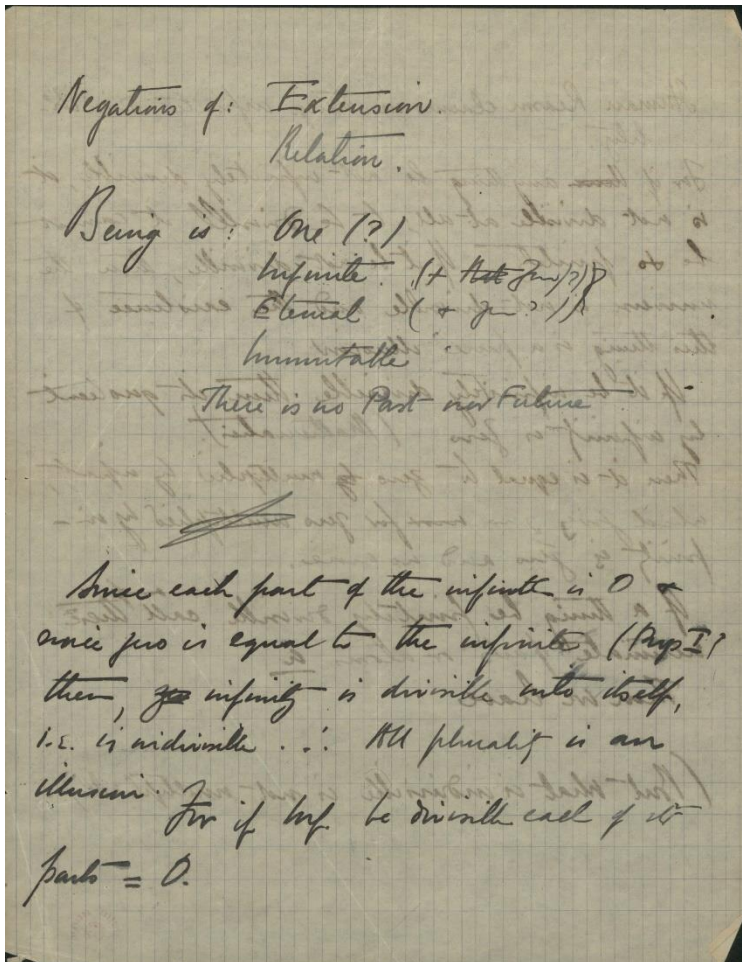 Negations of: Extension.
Relation.
Being is: One (?)
Infinite. (+ Zero?)
Eternal (+ Zero?)
Immutable
There is no Past nor Future
Since each part of the infinite is 0 &
since zero is equal to the infinite (Prop I)
then, infinity is divisible into itself,
i.e. is indivisible. ∴ All plurality is an
illusion.
For if Inf. be divisible each of its
parts = 0.